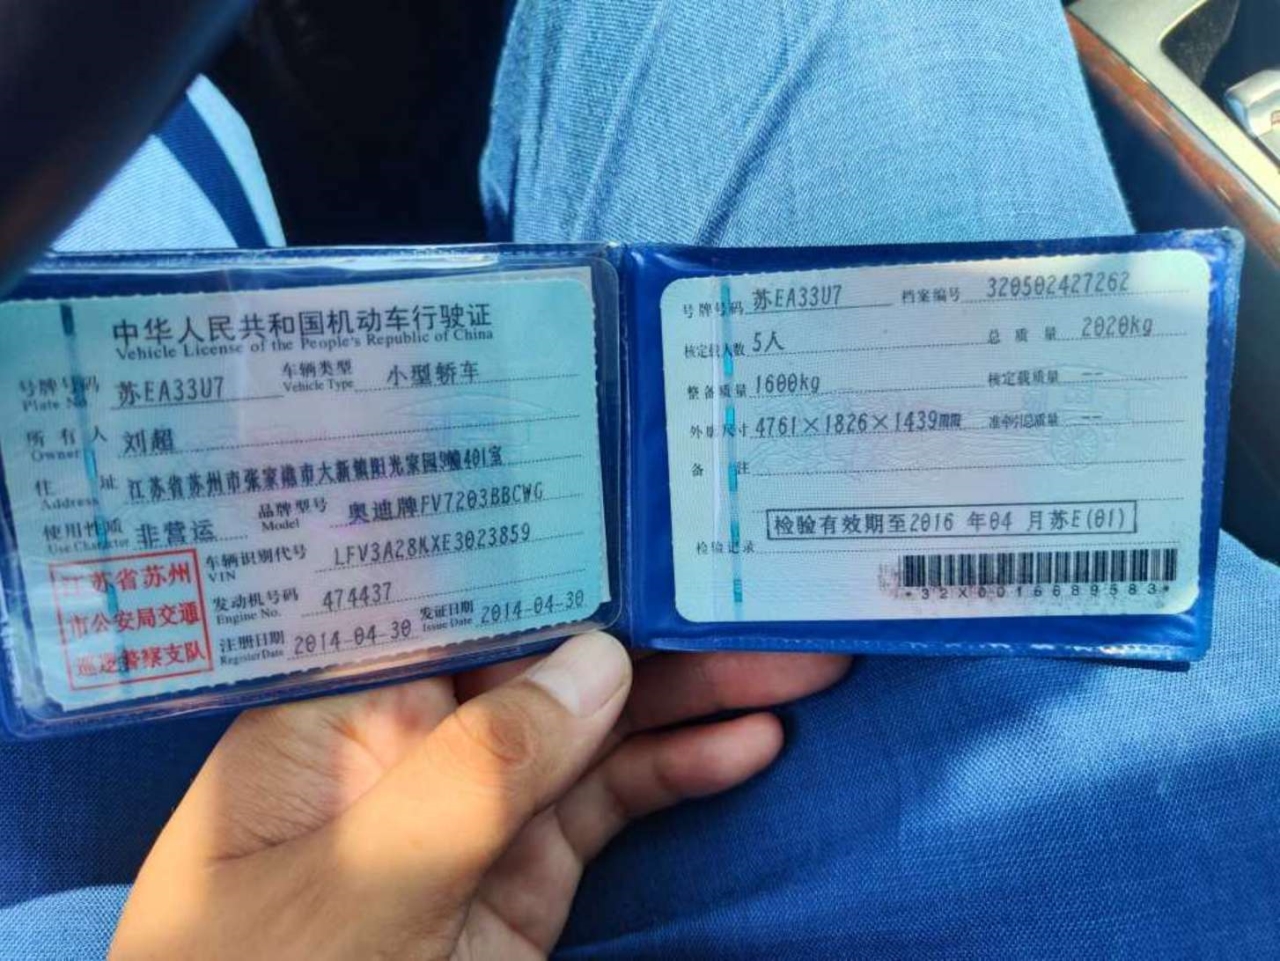 中华人民共和国机动车行驶证
Vehicle License of the People's Republic of China
号牌号码 苏EA33U7 车辆类型 小型轿车
Plate No. Vehicle Type
所有人 刘超
Owner
住址 江苏省苏州市张家港市大新镇阳光家园9幢401室
Address
使用性质 非营运 品牌型号 奥迪牌FV7203BBCWG
Use Character Model
车辆识别代号 LFV3A28KXE3023859
VIN
发动机号码 474437
Engine No.
注册日期 2014-04-30 发证日期 2014-04-30
Register Date Issue Date
江苏省苏州
市公安局交通
巡逻警察支队
号牌号码 苏EA33U7 档案编号 320502427262
核定载人数 5人 总质量 2020kg
整备质量 1600kg 核定载质量 --
外廓尺寸 4761×1826×1439mm 准牵引总质量 --
备注
检验有效期至2016 年04 月苏E(01)
检验记录
*32X0015689583*